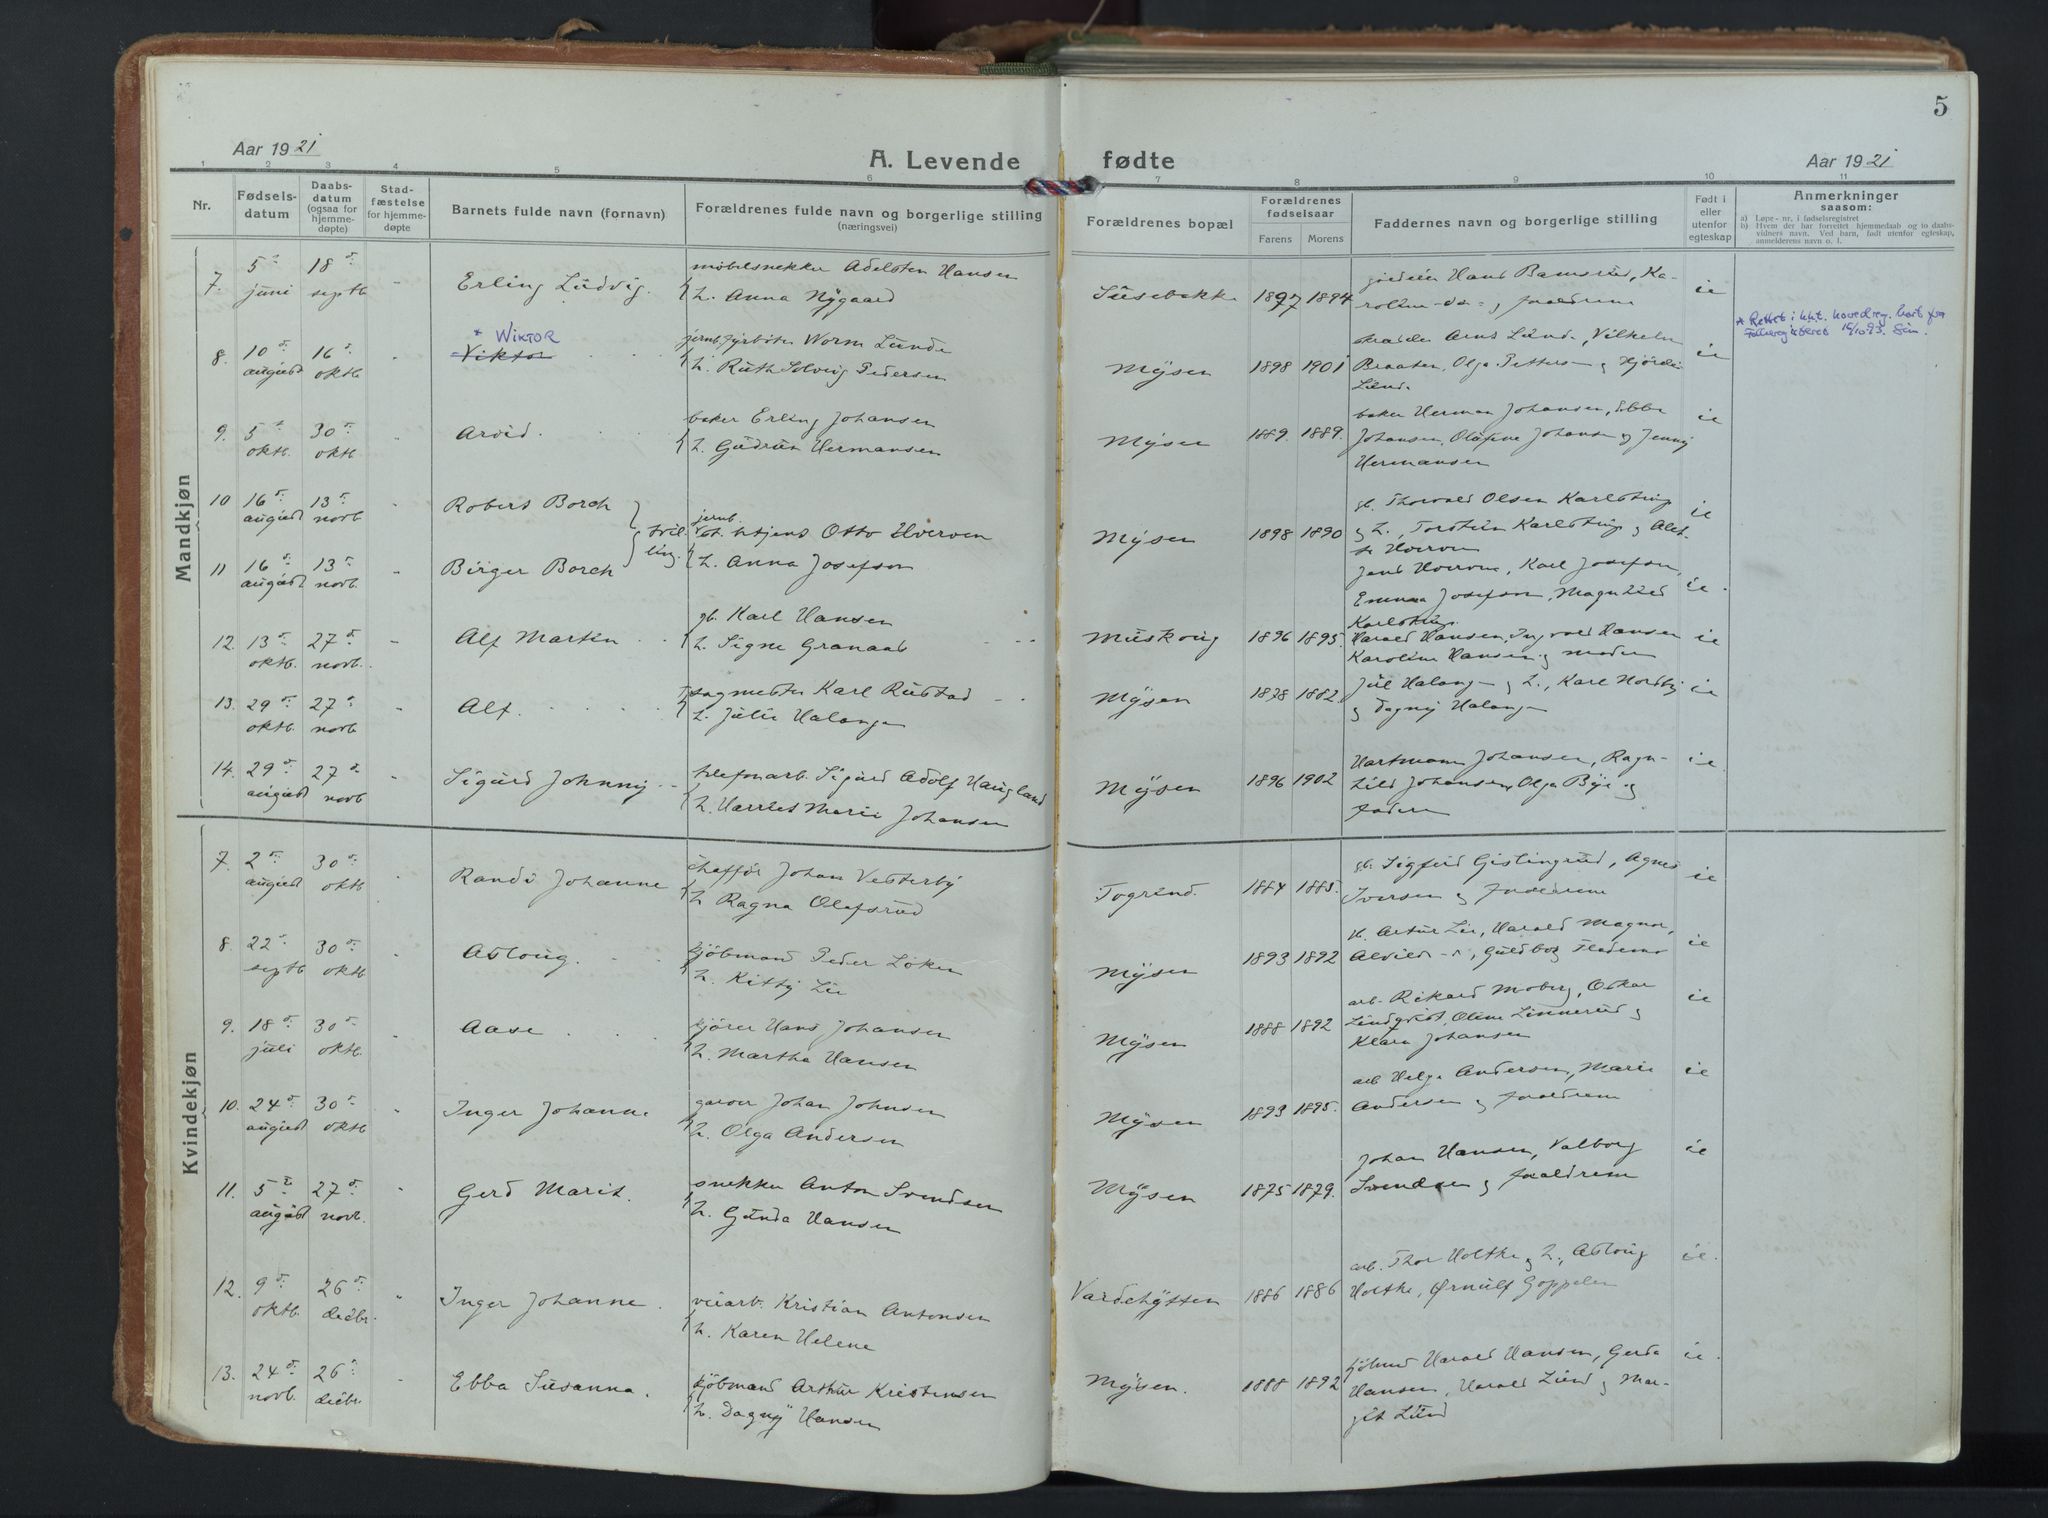 5
Aar 1921
A. Levende fødte
Aar 1921
1 2 3 4 5 6 7 8 9 10 11
Nr.
Fødsels-
datum
Daabs-
datum
(ogsaa for
hjemme-
døpte)
Stad-
fæstelse
for hjemme-
døpte
Barnets fulde navn (fornavn)
Forældrenes fulde navn og borgerlige stilling
(næringsvei)
Forældrenes bopæl
Forældrenes
fødselsaar
Farens Morens
Faddernes navn og borgerlige stilling
Født i
eller
utenfor
egteskap
Anmerkninger
saasom:
a) Løpe-nr. i fødselsregistret
b) Hvem der har forrettet hjemmedaab og to daabs-
vidners navn. Ved barn, født utenfor egteskap,
anmelderens navn o. l.
Mandkjøn
7. 5 juni 18 septb. Erling Ludvig.
møbelsnekker Adelsten Hansen
h. Anna Nygaard
Susebakke 1897 1894
Hans Bamsrud, Ka-
roline do og forældrene
ie
* Rettet i hht. hovedreg. brev fra
Folkeregisteret 16/10 93.
8. 10 august 16 oktb. * WIKTOR
Viktor
jernb.fyrbøter Worm Lunde
h. Ruth Solveig Pedersen
Mysen 1898 1901
Arns Lunde, Vilhelm
Braaten, Olga Petterson og Hjördis
Lunde
ie
9. 5 oktb. 30 oktb. Arvid.
baker Erling Johansen
h. Gudrun Hermansen
Mysen 1889. 1889.
baker Herman Johansen, Ebba
Johansen, Olufine Johansen og Jenny
Hermansen
ie
10 16 august 13 novb. Robert Borch
11 16 august 13 novb. Birger Borch
tvil-
ling.
jernb.
Otto Hverven
h. Anna Josefson
Mysen 1898 1890
gb. Thorvald Olsen Karlstring
og h., Torstein Karlstring og
Hverven
ie
Jens Hverven, Karl Josefson,
Emma Josefson, Magnhild
Karlstring.
ie.
12. 13 oktb. 27 novb. Alf Martin
gb. Karl Hansen
h. Signe Granaas
Muskoug 1896 1895.
Harald Hansen, Ingvald Hansen
Karoline Hansen og moder
ie
13. 29 oktb. 27 novb. Alf.
sagmester Karl Rustad
h. Julie Halangen
Mysen 1878 1882.
Jul Halangen og h., Karl Nordby
og Dagny Halangen
ie
14. 29 august 27 novb Sigurd Johnny
telefonarb. Sigurd Adolf Haugland
h. Harriet Marie Johansen
Mysen 1896 1902
Hartmann Johansen, Ragn-
hild Johansen, Olga Bye og
fadern
ie.
Kvindekjøn
7. 2 august 30 oktb Randi Johanne
chaffør Johan Vesterby
h Ragna Olafsrud
Togrend. 1884 1885.
gb. Sigfrid Gislingrud, Agnes
Iversen og forældrene
ie
8. 22 septb 30 oktb Aslaug.
kjøbmand Peder Løken
h. Kitty Lie
Mysen 1893 1892
Artur Lie, Harald Magnor,
Alvilde, Guldborg
ie
9. 18 juli 30 oktb. Aase
kjører Hans Johansen
h. Martha Hansen
Mysen 1888 1892
arb. Rikard Moberg, Oskar
Lundqvist, Oline Linnerud og
Klara Johansen
ie
10. 24 august 30 oktb Inger Johanne
garver Johan Johnsen
h. Olga Andersen
Mysen 1893 1895.
arb Helge Andersen, Marie
Andersen og forældrene
ie
11. 5 august 27 novb. Gerd Marit.
snekker Anton Svendsen
h. Gunda Hansen
Mysen 1875 1879.
Johan Hansen, Valborg
Svendsen og forældrene
ie
12. 9 oktb. 26 decbr. Inger Johanne.
veiarb. Kristian Antonsen
h. Karen Helene
Vardehytten 1886 1886
arb. Thor Holtke og h., Aslaug
Holtke, Ørnulf Goppelen
ie.
13. 24 novb. 26 decbr Ebba Susanna.
kjøbmand Arthur Kristensen
h. Dagny Hansen
Mysen. 1888 1892
kjøbmd Harald Hansen, Gerda
Hansen, Harald Lund og Mar-
git Lund
ie.